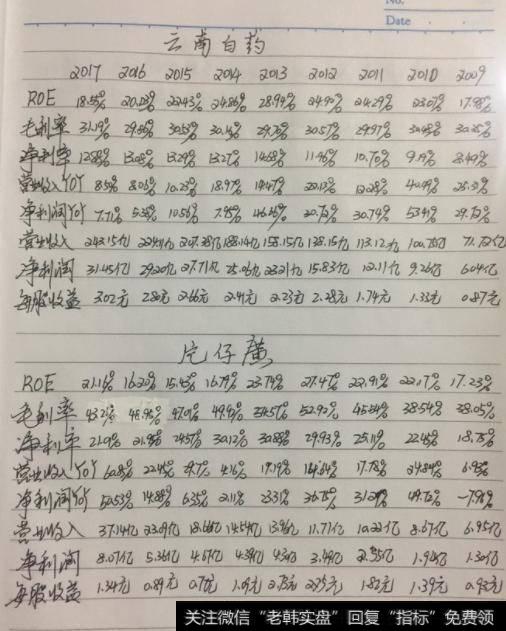 No.
Date
云南白药
2017 2016 2015 2014 2013 2012 2011 2010 2009
ROE 18.55% 20.03% 22.43% 24.86% 28.94% 24.90% 24.29% 23.07% 17.98%
毛利率 31.19% 29.86% 30.53% 30.16% 29.70% 30.57% 29.97% 30.48% 30.25%
净利率 12.88% 13.08% 13.29% 13.27% 14.68% 11.46% 10.70% 9.19% 8.40%
营业收入YOY 8.5% 10.2% 18.97% 12.28% 40.49%
净利润YOY 7.71% 5.35% 10.56% 20.72% 30.74% 53.41% 29.72%
营业收入 243.15亿 224.11亿 207.38亿 188.14亿 158.15亿 138.15亿 113.12亿 100.75亿 71.72亿
净利润 31.45亿 29.20亿 27.71亿 25.06亿 23.21亿 15.83亿 12.11亿 9.26亿 6.04亿
每股收益 3.02元 2.80元 2.66元 2.41元 2.23元 2.28元 1.74元 1.33元 0.87元
片仔廣
ROE 21.16% 16.20% 15.45% 16.79% 23.79% 27.47% 22.91% 22.17% 17.23%
毛利率 43.2% 48.95% 47.01% 52.92% 38.54% 38.05%
净利率 21.0% 21.95% 24.57% 30.12% 30.88% 29.93% 25.11% 22.45% 18.75%
营业收入YOY 22.45% 17.78% 24.84% 6.95%
净利润YOY 50.53% 14.88% 6.35% 2.11% 49.72%
营业收入 37.14亿 23.09亿 18.86亿 14.54亿 13.96亿 11.71亿 10.22亿 8.67亿 6.95亿
净利润 8.07亿 5.36亿 4.67亿 4.39亿 3.49亿 2.55亿 1.94亿 1.30亿
每股收益 1.34元 0.89元 1.82元 1.39元 0.93元
关注微信“老韩实盘”回复“指标”免费领